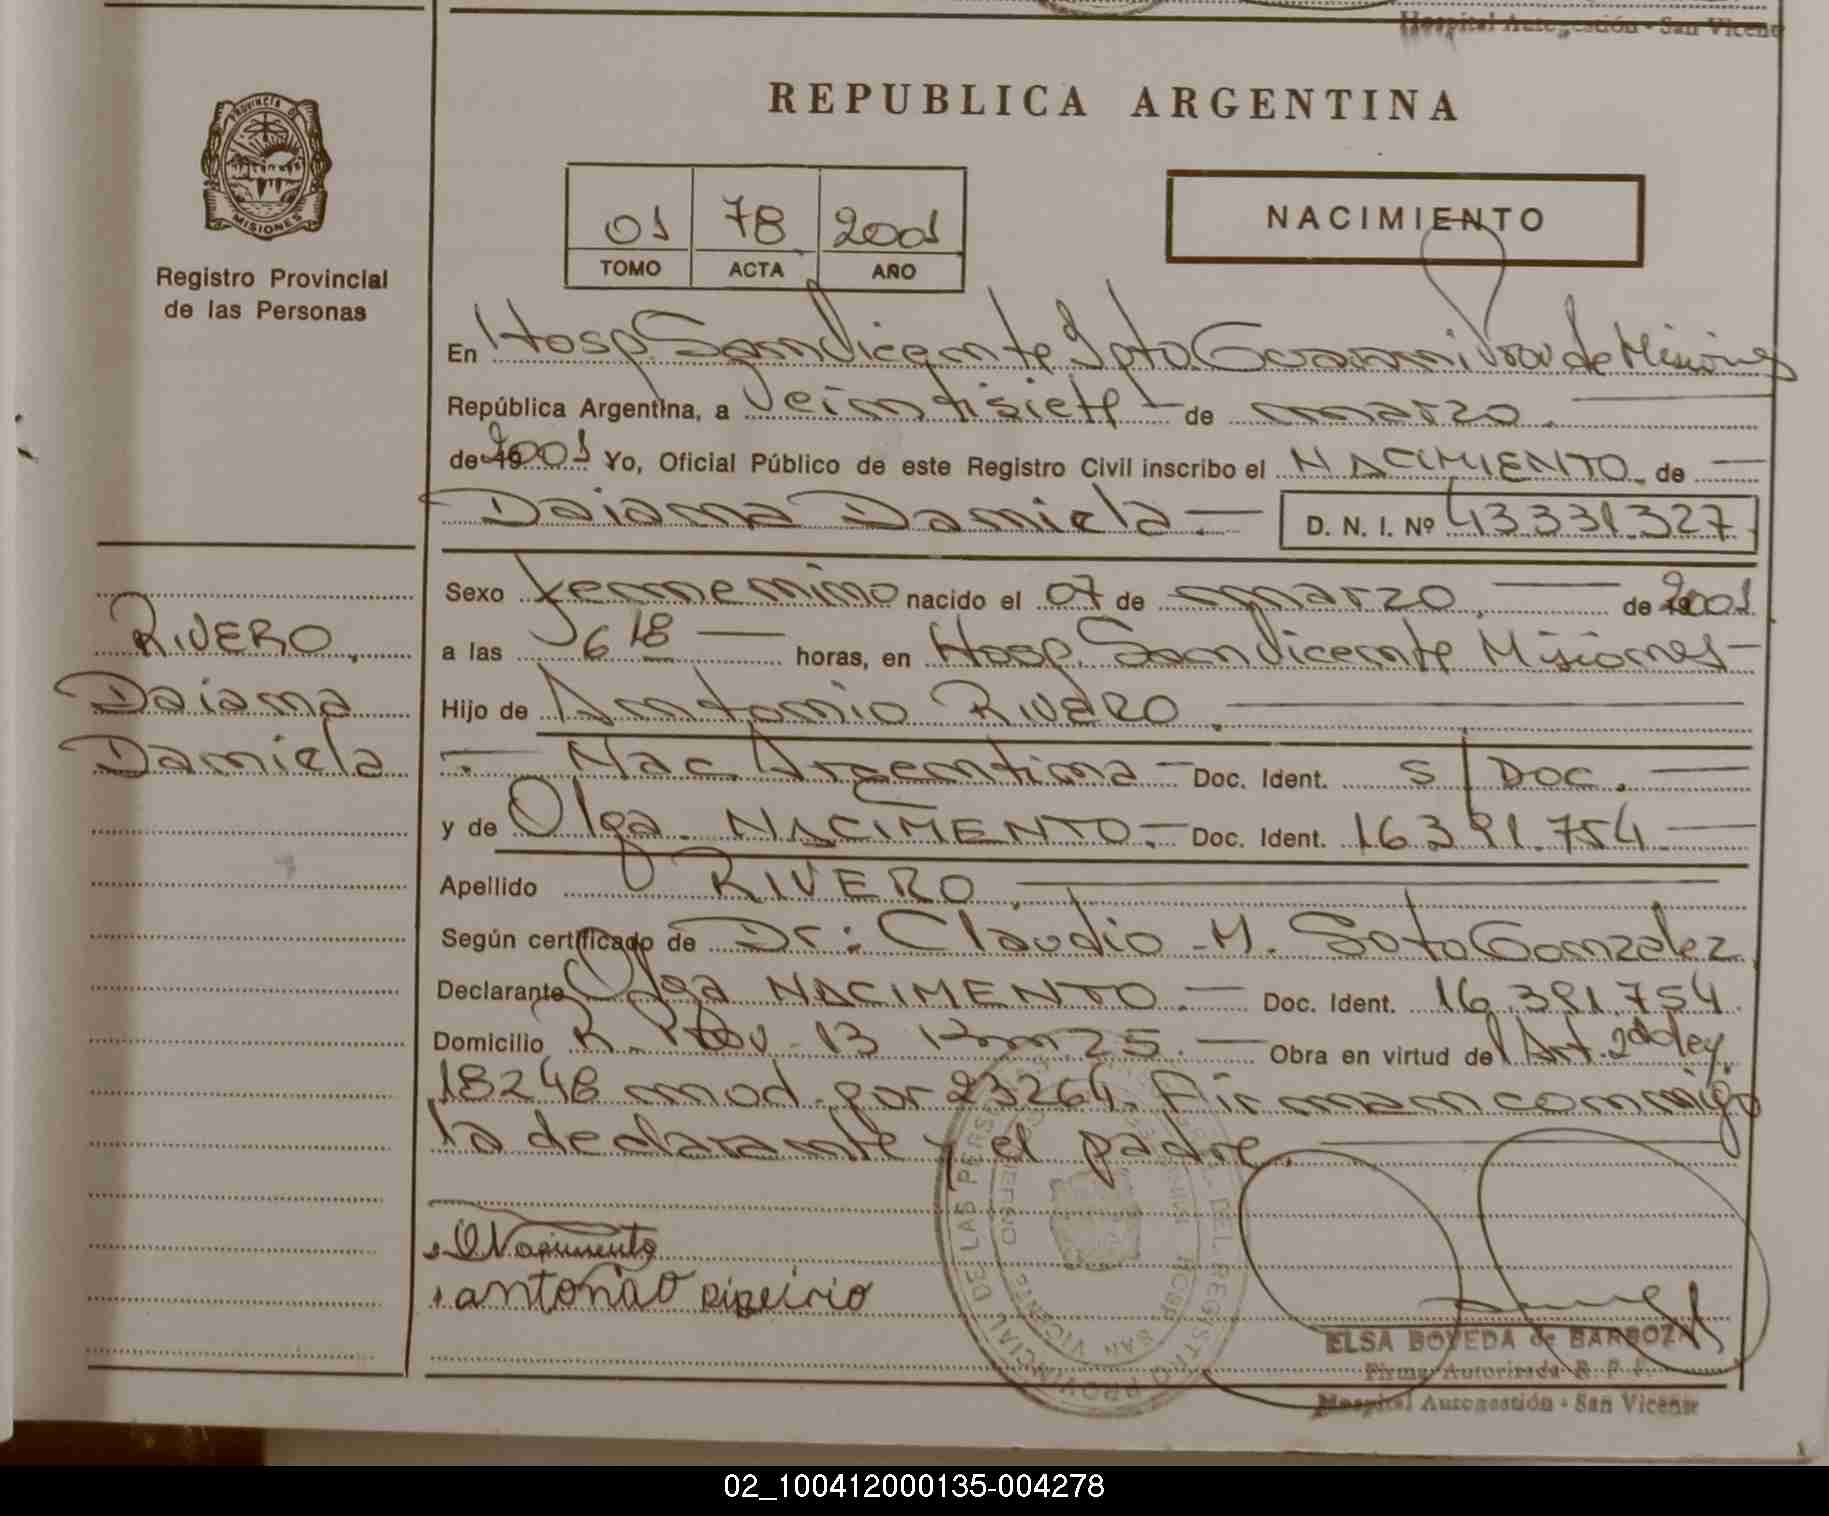 Hospital Autogestión - San Vicente
REPUBLICA ARGENTINA
PROVINCIA D
MISIONES
Registro Provincial
de las Personas
01 78 2001
TOMO ACTA AÑO
NACIMIENTO
En Hosp. San Vicente Dpto. Guarani Prov de Misiones
República Argentina, a Veintisiete de marzo.
de 19 2001 Yo, Oficial Público de este Registro Civil inscribo el NACIMIENTO de
Daiana Daniela.- D. N. I. Nº 43.331.327
Sexo femenino nacido el 07 de marzo. de 2001
a las 6 18 horas, en Hosp. San Vicente Misiones
RIVERO,
Daiana
Daniela
Hijo de Antonio RIVERO.
- Nac. Argentina - Doc. Ident. S/Doc.
y de Olga NACIMENTO.- Doc. Ident. 16.391.754.
Apellido RIVERO
Según certificado de Dr: Claudio M. Soto Gonzalez
Declarante Olga NACIMENTO.- Doc. Ident. 16.391.754.
Domicilio R. Prov. 13 Km 25.- Obra en virtud del Art. 2º de ley
18248 mod. por 23264. Firman conmigo
la declarante y el padre.
O Nacimento
antonio
ELSA BOVEDA de BARBOZA
Firma Autorizada R. P. P.
Hospital Autogestión - San Vicente
PROVINCIAL DE LAS PERS DEL REGISTRO
HOSP. SAN VICENTE
02_100412000135-004278